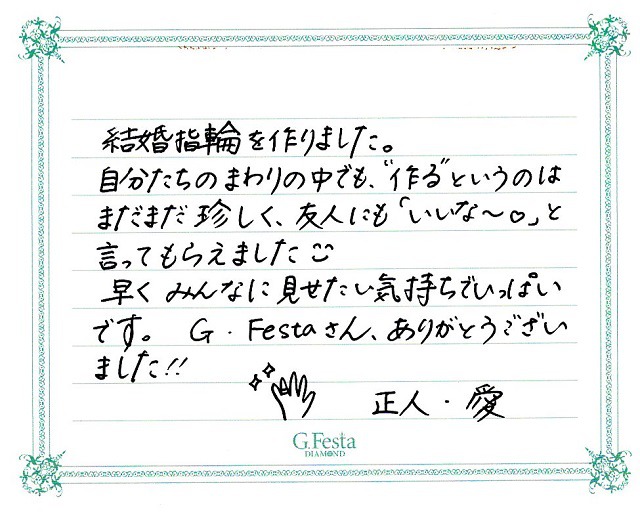 結婚指輪を作りました。
自分たちのまわりの中でも、"作る"というのは
まだまだ珍しく、友人にも「いいな〜♡」と
言ってもらえました
早くみんなに見せたい気持ちでいっぱい
です。 G・Festaさん、ありがとうござい
ました!!
正人・愛
G.Festa
DIAMOND